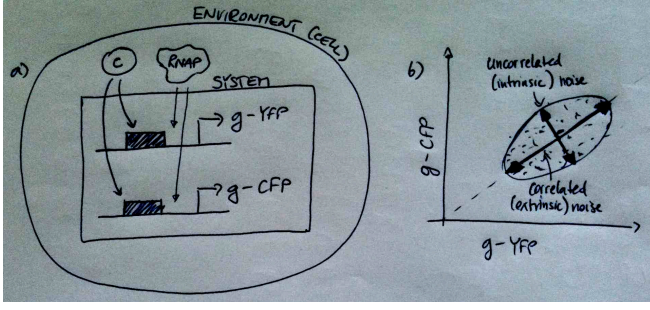 a)
ENVIRONMENT (CELL)
C
RNAP
SYSTEM
g-YFP
g-CFP
b)
g-CFP
Uncorrelated
(intrinsic) noise
Correlated
(extrinsic) noise
g-YFP